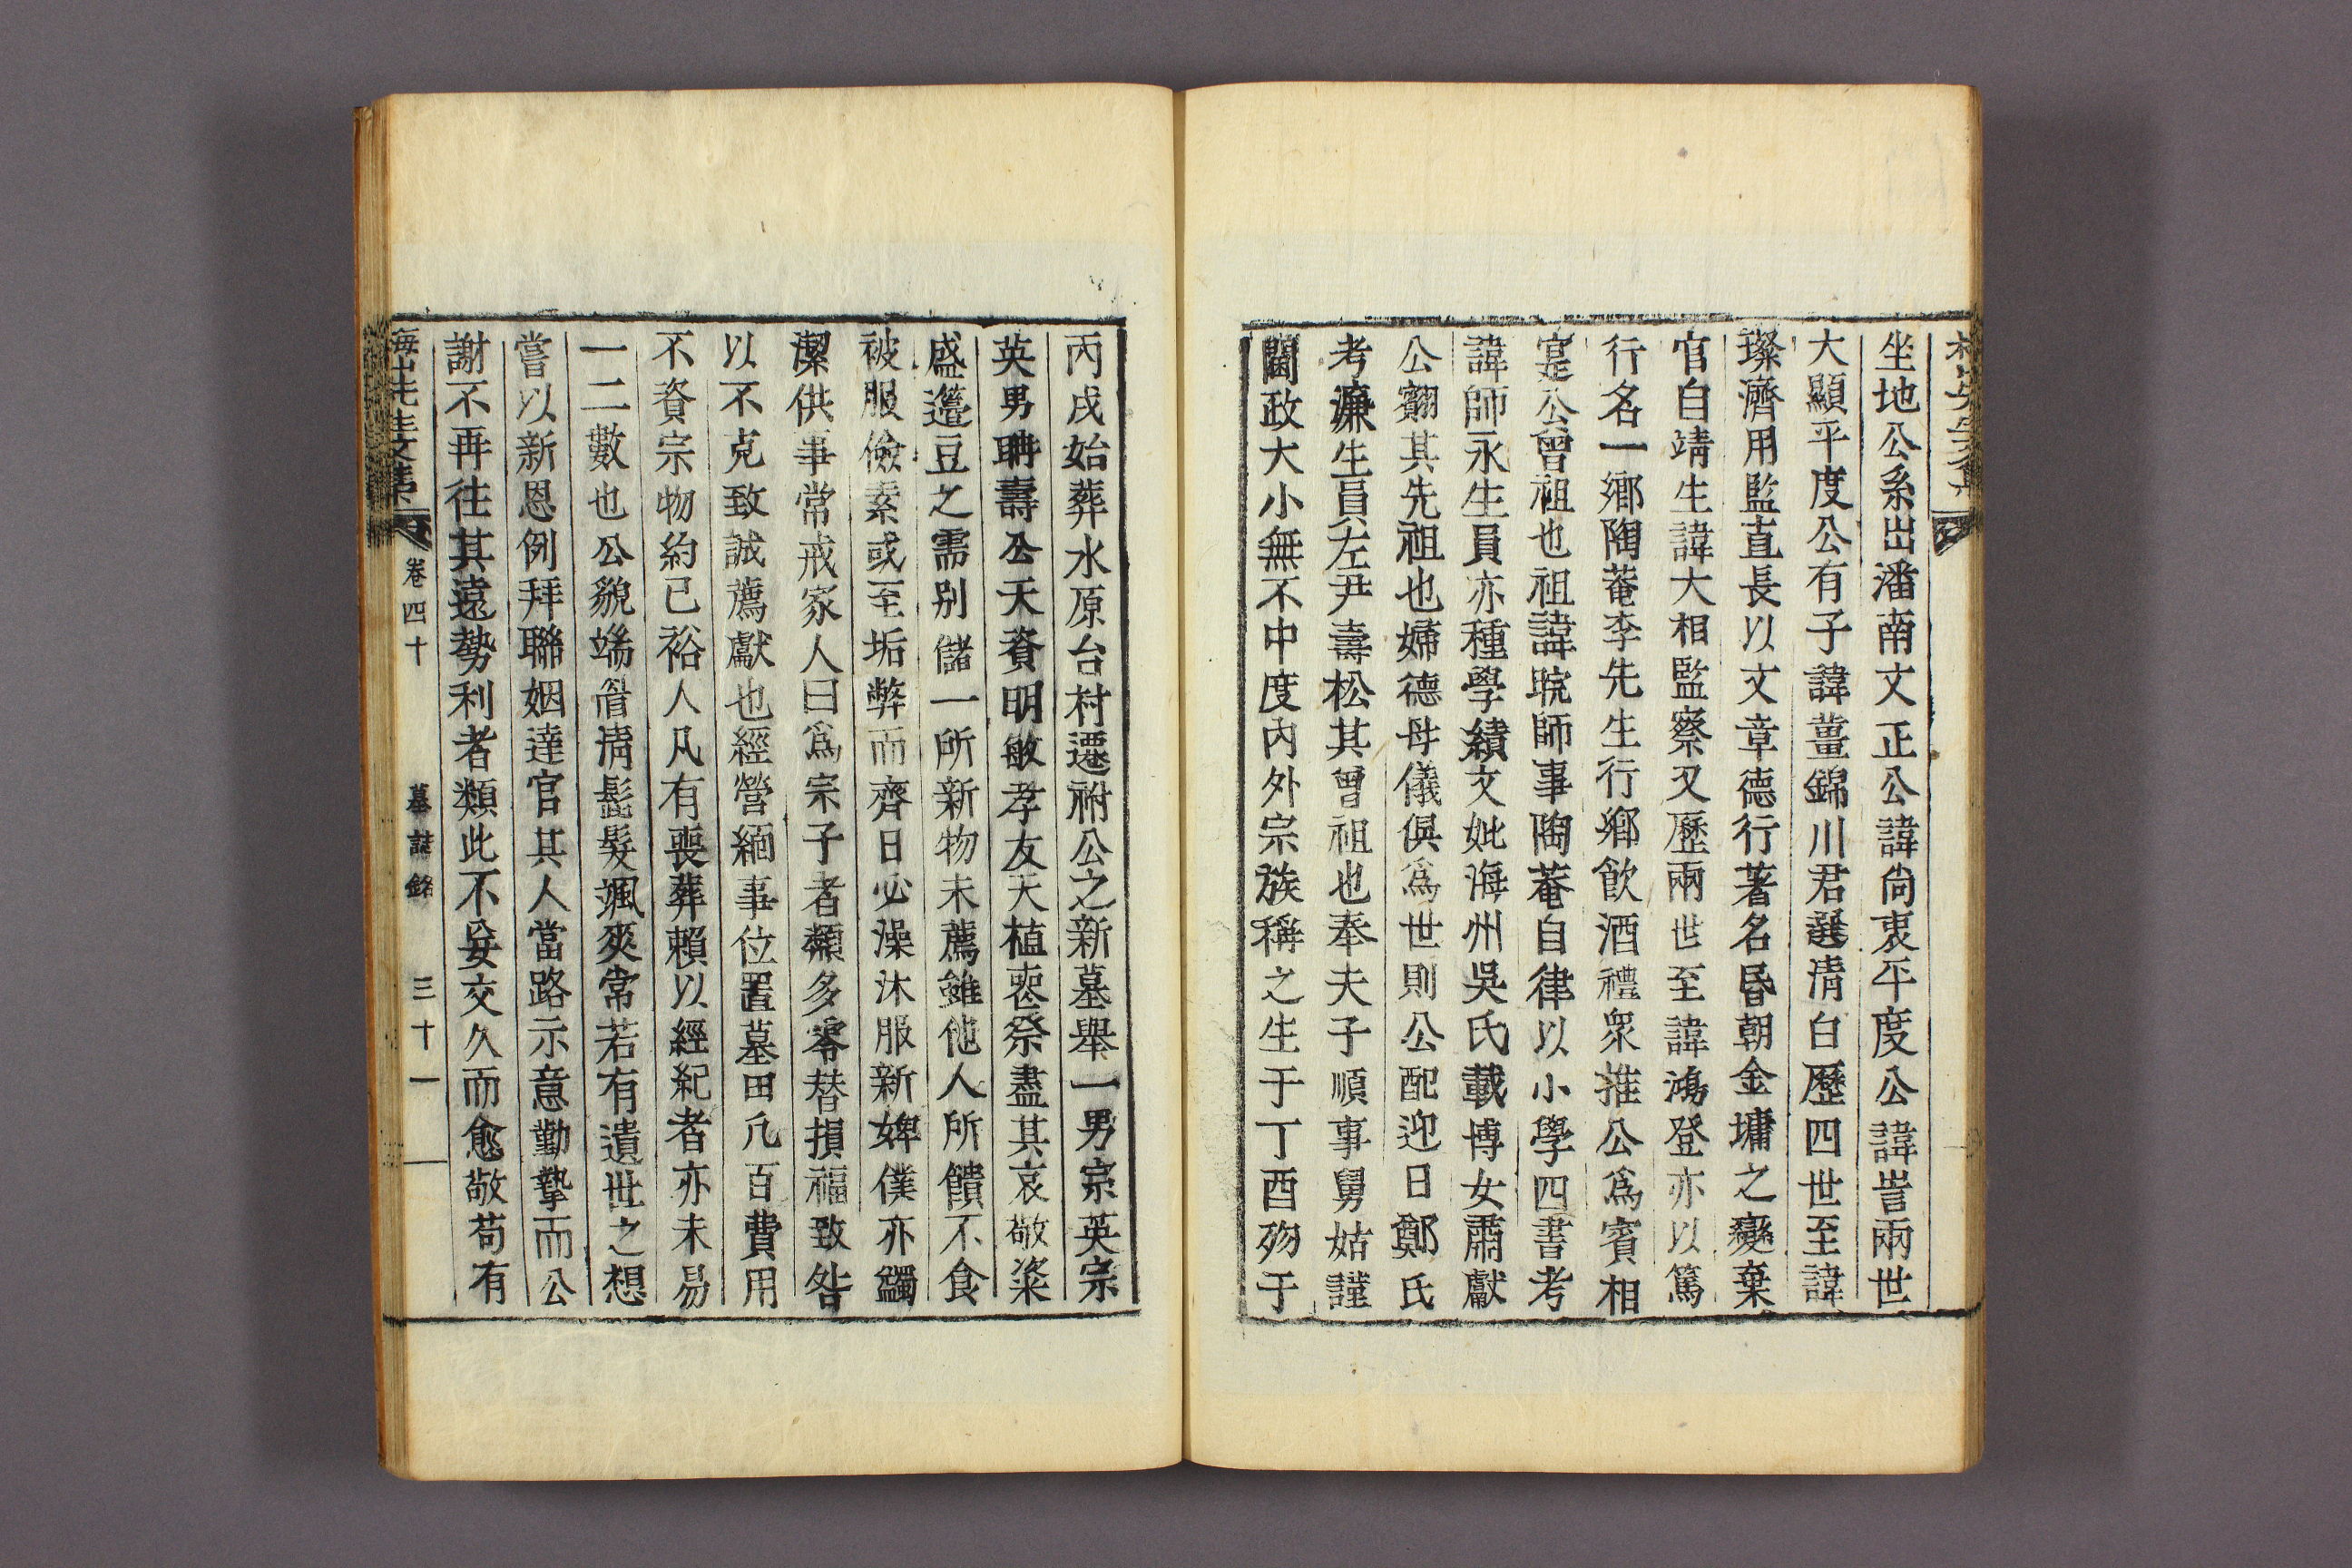 坐地公系出潘南文正公諱尙衷平度公諱訔兩世
大顯平度公有子諱薑錦川君選淸白歷四世至諱
璨濟用監直長以文章德行著名昏朝金墉之變棄
官自靖生諱大相監察又歷兩世至諱鴻登亦以篤
行名一鄕陶菴李先生行鄕飮酒禮衆推公爲賓相
寔公曾祖也祖諱晥師事陶菴自律以小學四書考
諱師永生員亦種學績文妣海州吳氏載博女肅獻
公翻其先祖也婦德母儀俱爲世則公配迎日鄭氏
考濂生員左尹壽松其曾祖也奉夫子順事舅姑謹
閫政大小無不中度內外宗族稱之生于丁酉歿于
丙戌始葬水原台村遷祔公之新墓舉一男宗英宗
英男聃壽公天資明敏孝友天植喪祭盡其哀敬粢
盛籩豆之需別儲一所新物未薦雖他人所饋不食
被服儉素或至垢弊而齊日必澡沐服新婢僕亦蠲
潔供事常戒家人曰爲宗子者類多零替損福致咎
以不克致誠薦獻也經營緬事位置墓田凡百費用
不資宗物約己裕人凡有喪葬賴以經紀者亦未易
一二數也公貌端眉淸髭髮颯爽常若有遺世之想
嘗以新恩例拜聯姻達官其人當路示意勤摯而公
謝不再往其遠勢利者類此不妄交久而愈敬苟有
梅山先生文集 卷四十 墓誌銘 三十一